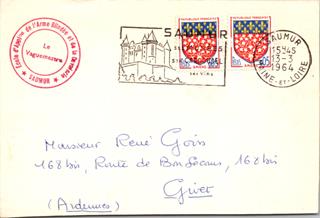 Ecole d'Application de l'Arme Blindée et de la Cavalerie
SAUMUR
Le
Vaguemestre
SAUMUR
SES VINS
REPUBLIQUE FRANÇAISE
0,05
AMIENS
REPUBLIQUE FRANÇAISE
0,05
AMIENS
SAUMUR
15H45
13-3
1964
MAINE-ET-LOIRE
Monsieur René Goin
168 bis, Route de Bordeaux, 168 bis
Givet
(Ardennes)